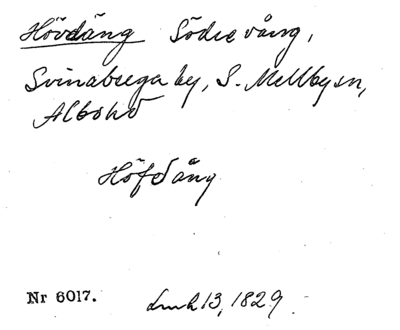 Hövdäng Södre vång,
Svinaberga by, S. Mellby sn,
Albo hd
Höfdäng
Nr 6017. 13, 1829